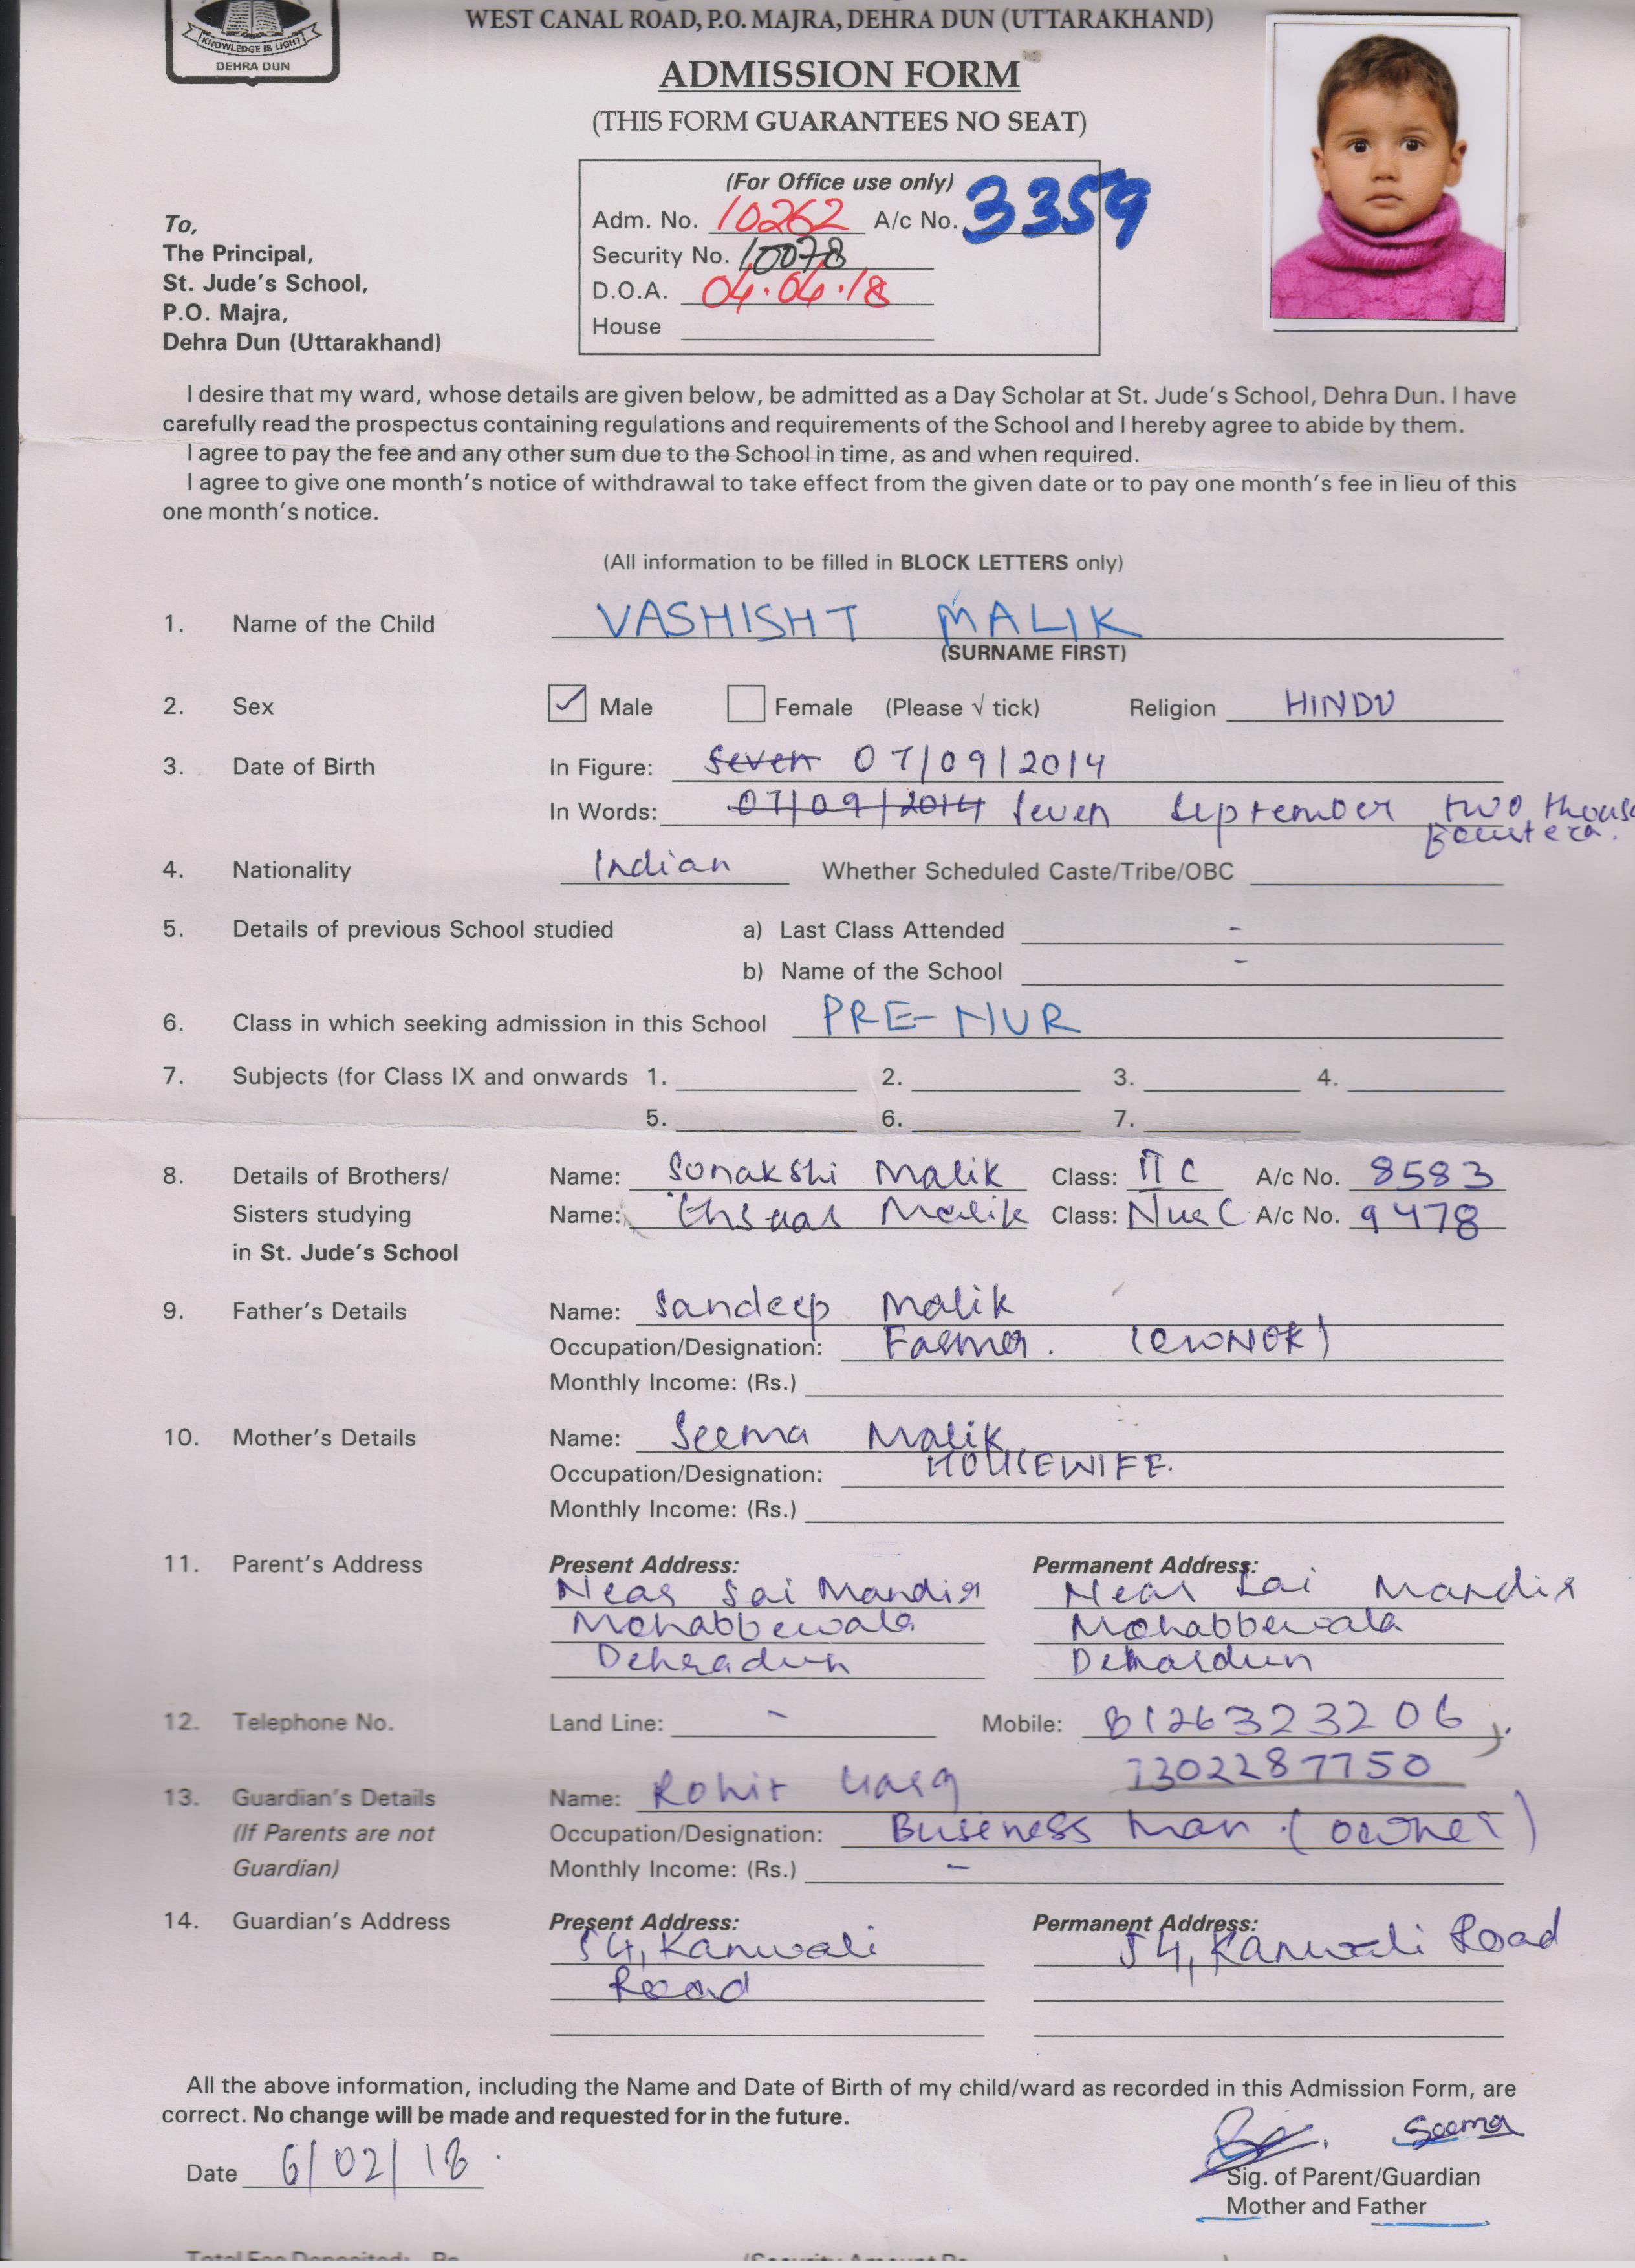 KNOWLEDGE IS LIGHT
DEHRA DUN
WEST CANAL ROAD, P.O. MAJRA, DEHRA DUN (UTTARAKHAND)
ADMISSION FORM
(THIS FORM GUARANTEES NO SEAT)
(For Office use only)
Adm. No. 10262 A/c No. 3359
Security No. 10078
D.O.A. 04.04.18
House
To,
The Principal,
St. Jude's School,
P.O. Majra,
Dehra Dun (Uttarakhand)
I desire that my ward, whose details are given below, be admitted as a Day Scholar at St. Jude's School, Dehra Dun. I have
carefully read the prospectus containing regulations and requirements of the School and I hereby agree to abide by them.
I agree to pay the fee and any other sum due to the School in time, as and when required.
I agree to give one month's notice of withdrawal to take effect from the given date or to pay one month's fee in lieu of this
one month's notice.
(All information to be filled in BLOCK LETTERS only)
1. Name of the Child VASHISHT MALIK
(SURNAME FIRST)
2. Sex Male Female (Please √ tick) Religion HINDU
3. Date of Birth In Figure: Seven 07/09/2014
In Words: 07/09/2014 Seven September two thous
fourteen.
4. Nationality Indian Whether Scheduled Caste/Tribe/OBC
5. Details of previous School studied a) Last Class Attended -
b) Name of the School -
6. Class in which seeking admission in this School PRE-NUR
7. Subjects (for Class IX and onwards 1. 2. 3. 4.
5. 6. 7.
8. Details of Brothers/ Name: Sonakshi Malik Class: II C A/c No. 8583
Sisters studying Name: Ehsaas Malik Class: Nur C A/c No. 9478
in St. Jude's School
9. Father's Details Name: Sandeep Malik
Occupation/Designation: Farmer. (OWNER)
Monthly Income: (Rs.)
10. Mother's Details Name: Seema Malik
Occupation/Designation: HOUSEWIFE.
Monthly Income: (Rs.)
11. Parent's Address Present Address: Permanent Address:
Near Sai Mandir Near Sai Mandir
Mohabbewala Mohabbewala
Dehradun Dehardun
12. Telephone No. Land Line: - Mobile: 8126323206,
7302287750
13. Guardian's Details Name: Rohit Garg
(If Parents are not Occupation/Designation: Buseness man. (owner)
Guardian) Monthly Income: (Rs.) -
14. Guardian's Address Present Address: Permanent Address:
54, Kanwali 54, Kanwali Road
Road
All the above information, including the Name and Date of Birth of my child/ward as recorded in this Admission Form, are
correct. No change will be made and requested for in the future.
Seema
Date 6/02/18. Sig. of Parent/Guardian
Mother and Father